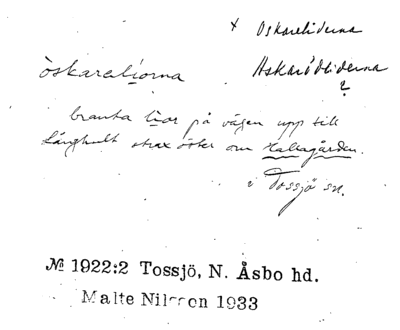 x Oskareliderna
òskaralíorna
Askarödliderna
?
branta líor på vägen upp till
Långhult strax öster om Hallagården.
i Tossjö sn.
№ 1922:2 Tossjö, N. Åsbo hd.
Malte Nilsson 1933